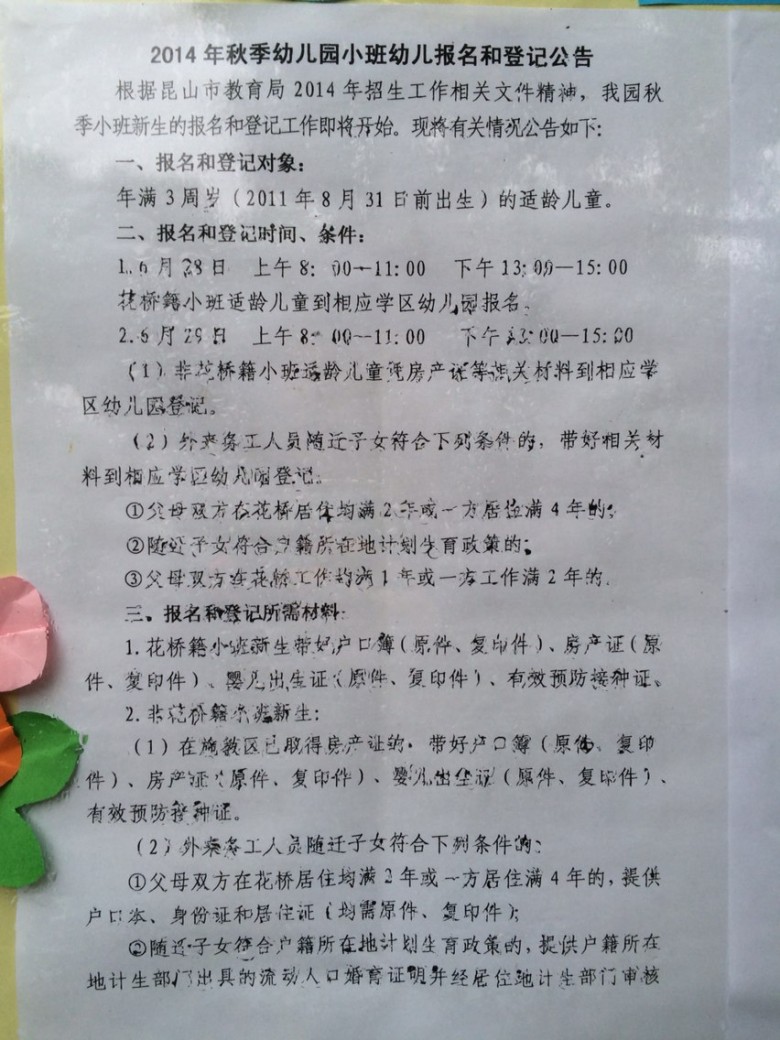 2014年秋季幼儿园小班幼儿报名和登记公告
根据昆山市教育局2014年招生工作相关文件精神，我园秋
季小班新生的报名和登记工作即将开始。现将有关情况公告如下：
一、报名和登记对象：
年满3周岁（2011年8月31日前出生）的适龄儿童。
二、报名和登记时间、条件：
1.6月28日 上午8：00—11：00 下午13：00—15：00
花桥籍小班适龄儿童到相应学区幼儿园报名。
2.6月29日 上午8：00—11：00 下午13：00—15：00
（1）非花桥籍小班适龄儿童凭房产证等相关材料到相应学
区幼儿园登记。
（2）外来务工人员随迁子女符合下列条件的，带好相关材
料到相应学区幼儿园登记。
①父母双方在花桥居住均满2年或一方居住满4年的；
②随迁子女符合户籍所在地计划生育政策的；
③父母双方在花桥工作均满1年或一方工作满2年的。
三、报名和登记所需材料：
1.花桥籍小班新生带好户口簿（原件、复印件）、房产证（原
件、复印件）、婴儿出生证（原件、复印件）、有效预防接种证。
2.非花桥籍小班新生：
（1）在施教区已取得房产证的，带好户口簿（原件、复印
件）、房产证（原件、复印件）、婴儿出生证（原件、复印件）、
有效预防接种证。
（2）外来务工人员随迁子女符合下列条件的：
①父母双方在花桥居住均满2年或一方居住满4年的，提供
户口本、身份证和居住证（均需原件、复印件）；
②随迁子女符合户籍所在地计划生育政策的，提供户籍所在
地计生部门出具的流动人口婚育证明并经居住地计生部门审核